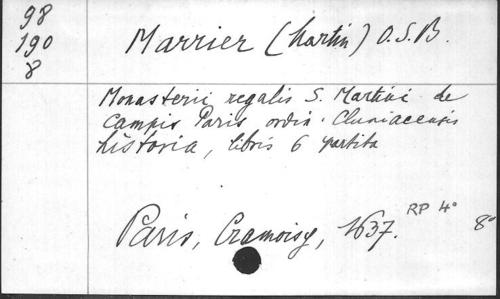 98
190
8
Marrier (Martin) O.S.B.
Monasterii regalis S. Martini de
Campis Paris ordis. Cluniacensis
historia, libris 6 partita
Paris, Cramoisy, 1637. RP 4° 8°